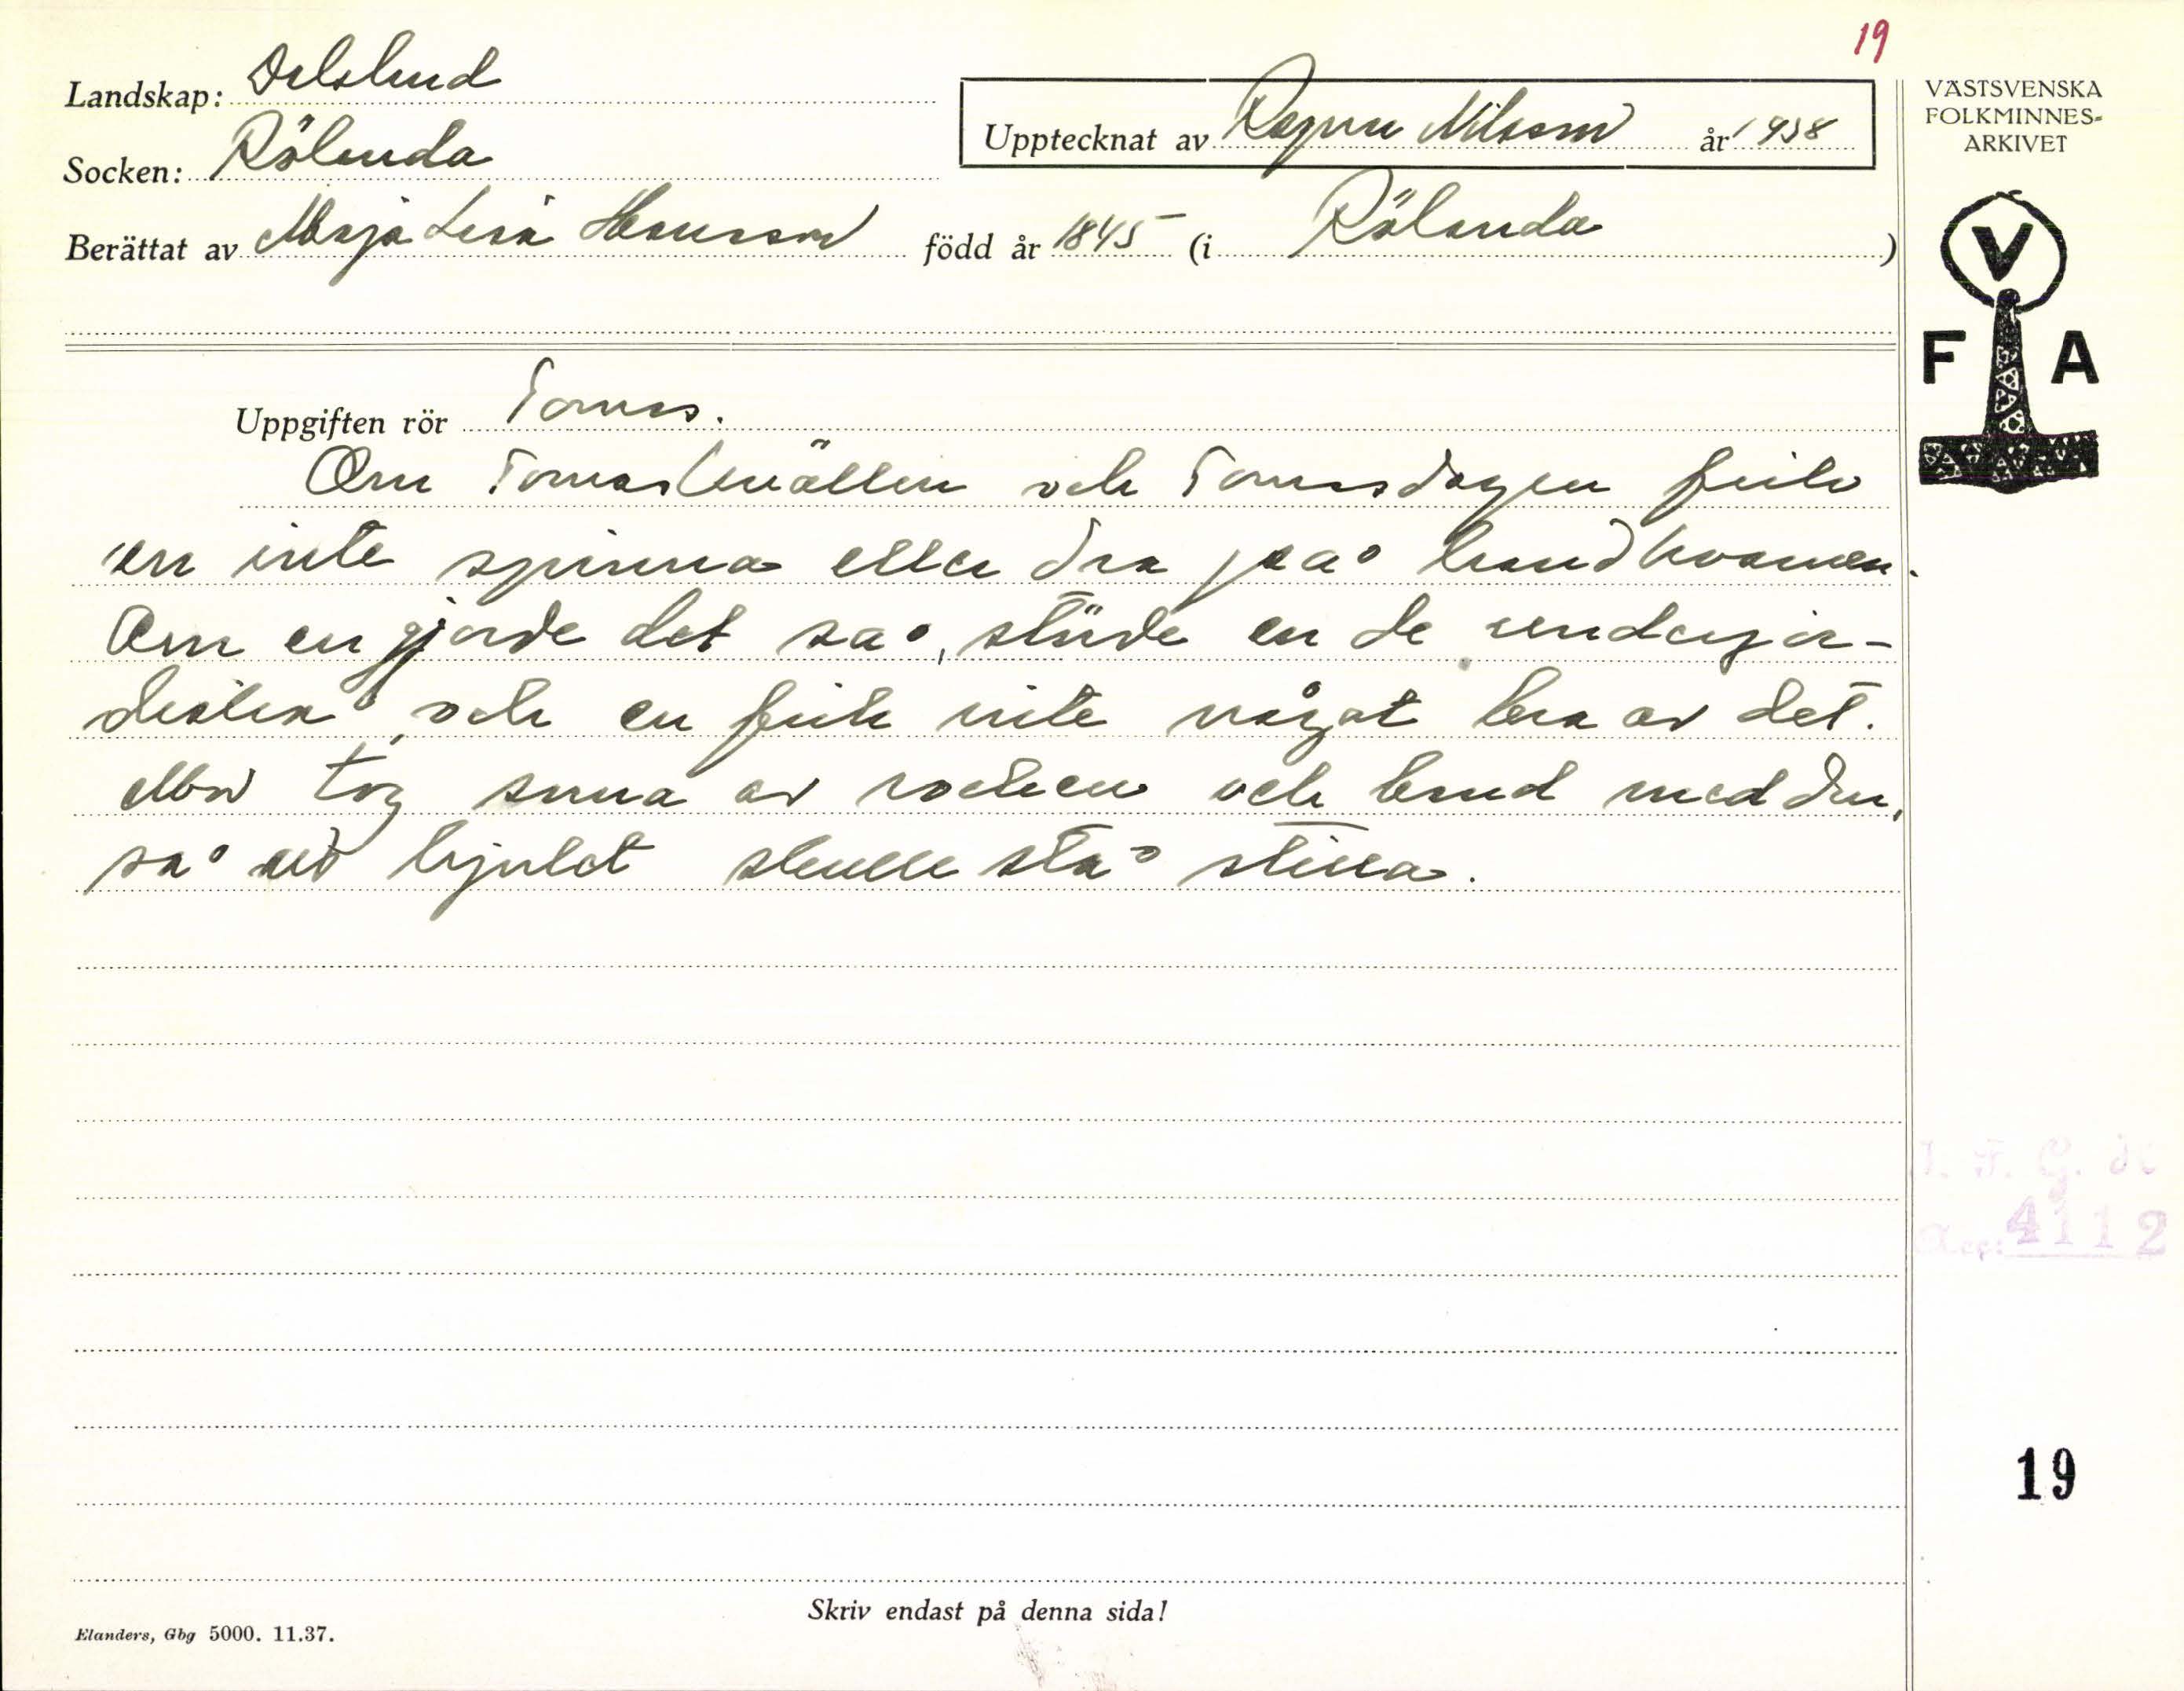 19
Landskap: Dalsland
Socken: Rölanda
Upptecknat av Ragnar Nilsson år 1938
Berättat av Maja Lisa Hansson född år 1845 (i Rölanda)
VÄSTSVENSKA
FOLKMINNES-
ARKIVET
V
F A
Uppgiften rör Tomas.
Om Tomaskvällen och Tomasdagen fick
en inte spinna eller dra på handkvarnen.
Om en gjorde det så, störde en de underjor-
diska och en fick inte något bra av det.
Mor tog snua av rocken och band med den,
så att hjulet skulle stå stilla.
I. F. G. K
Acc: 4112
19
Skriv endast på denna sida!
Elanders, Gbg 5000. 11.37.